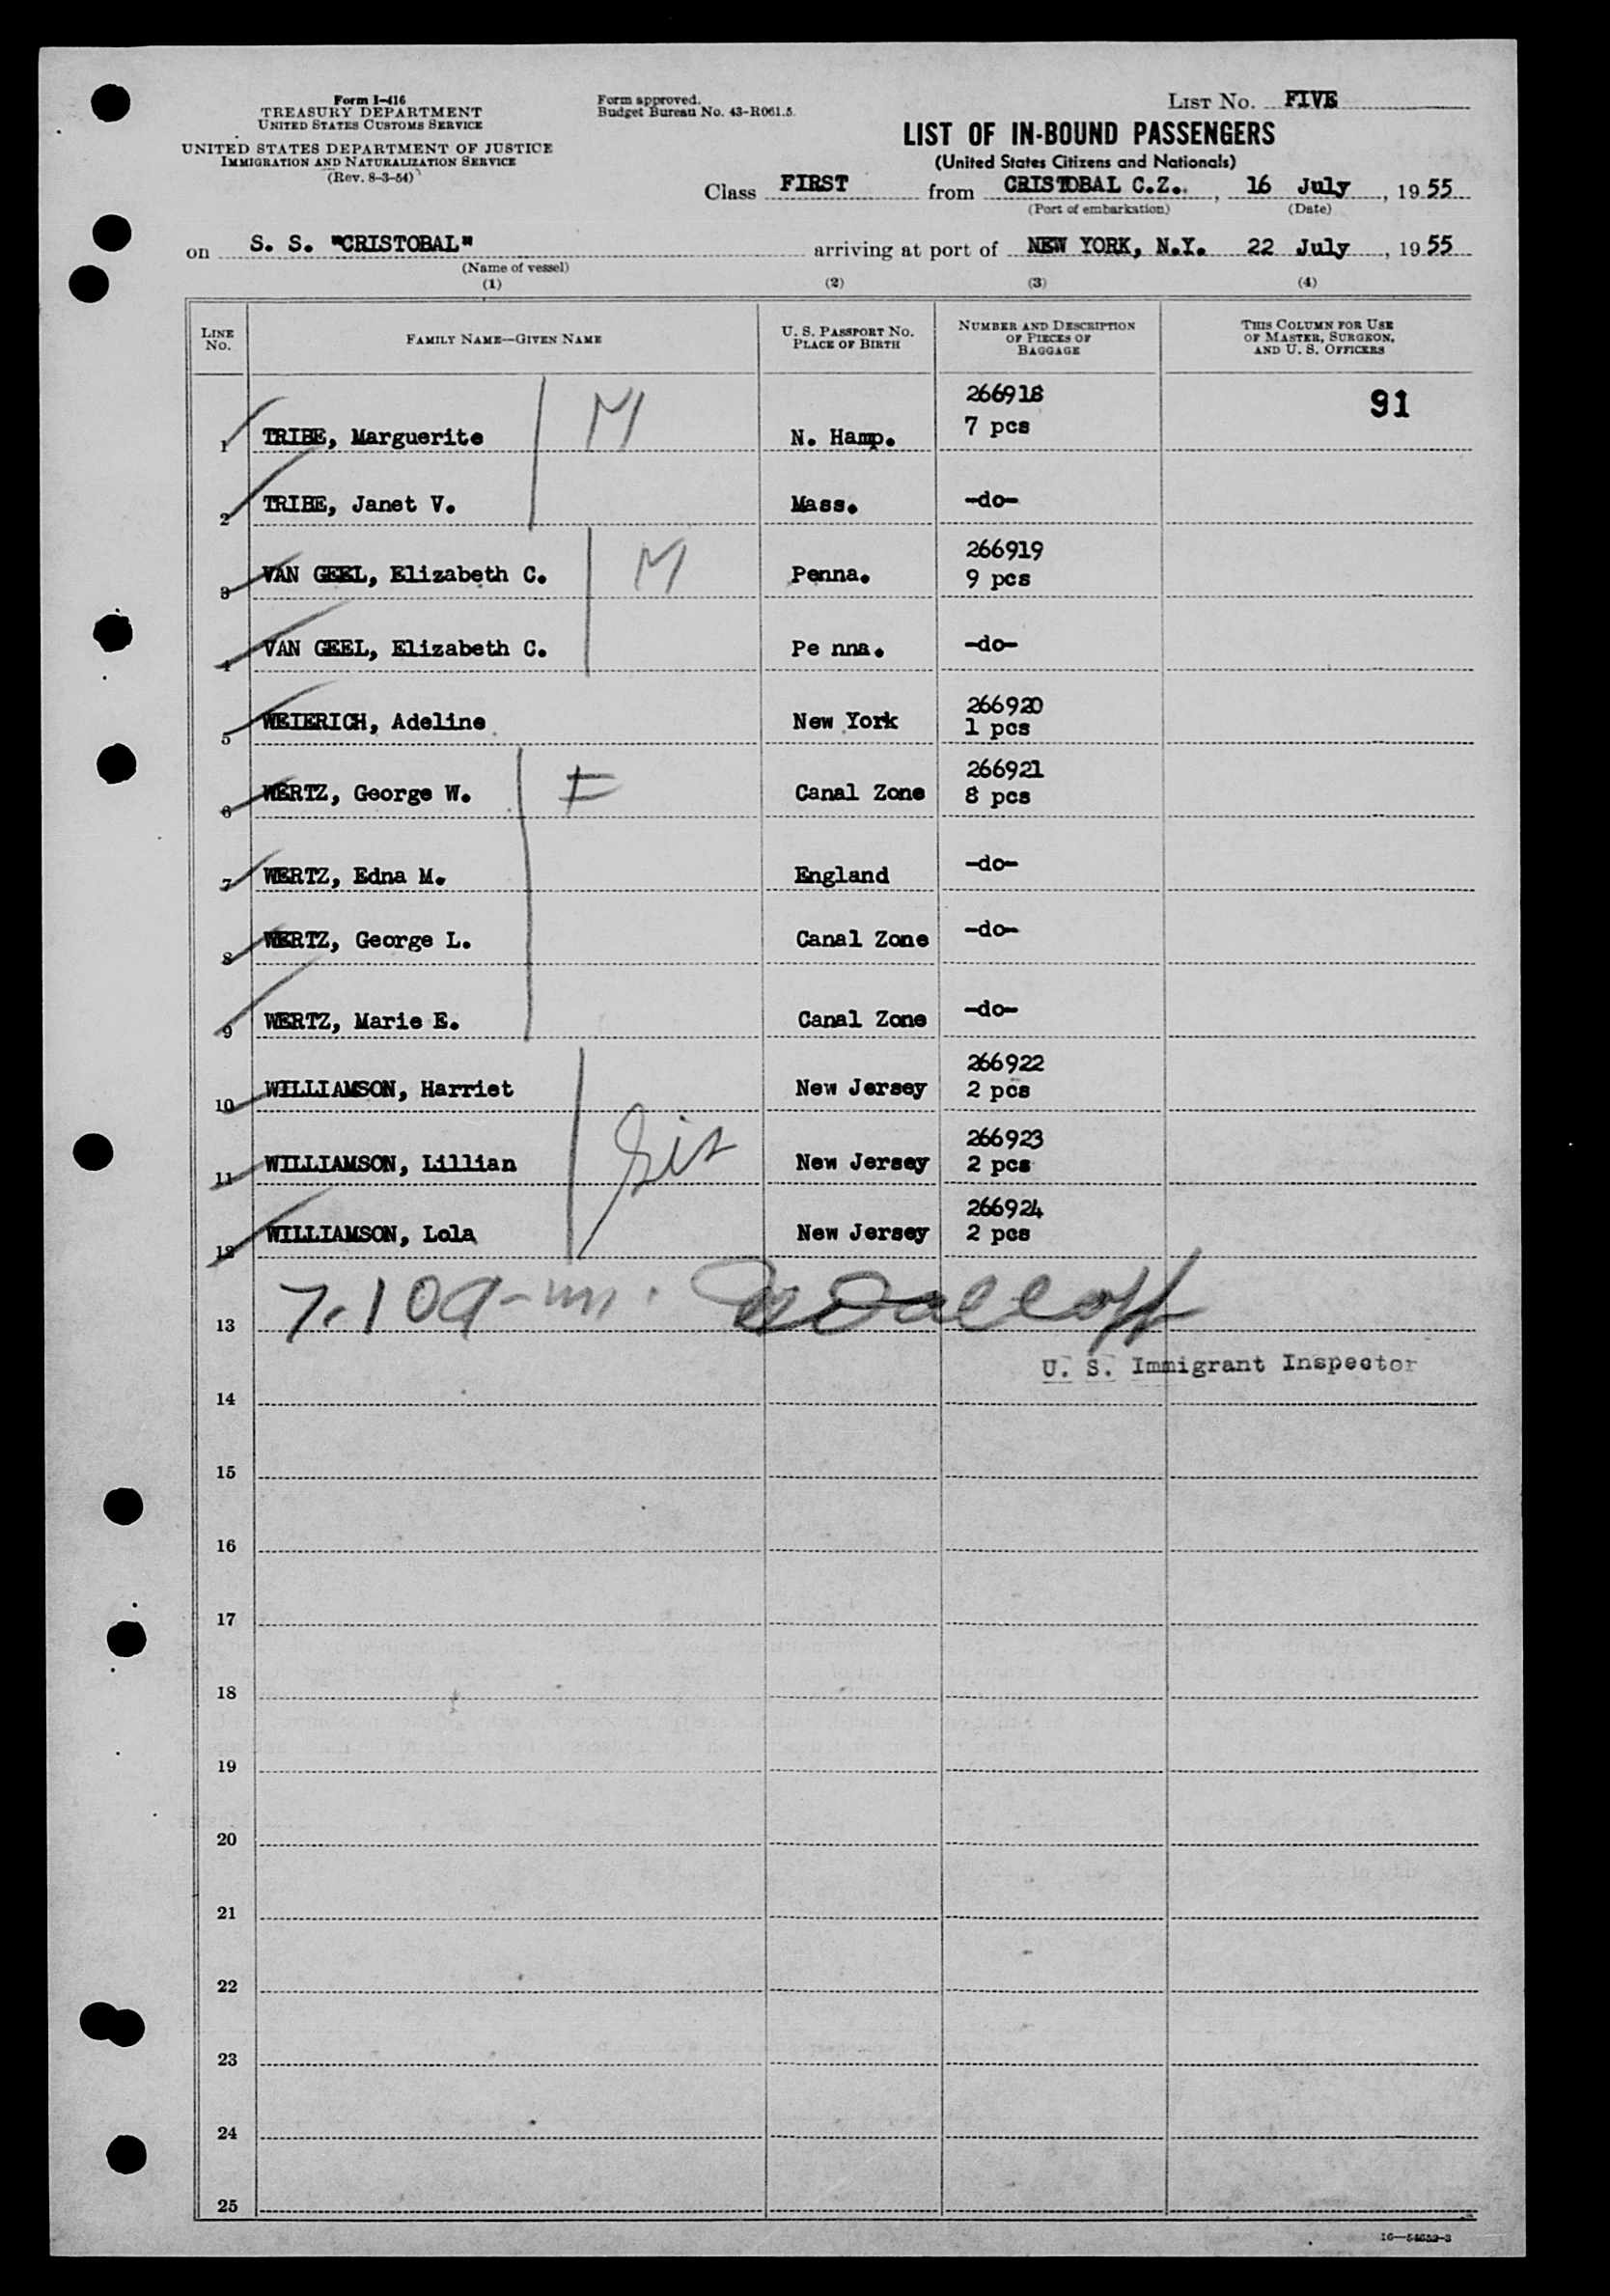 Form I-416
TREASURY DEPARTMENT
UNITED STATES CUSTOMS SERVICE
UNITED STATES DEPARTMENT OF JUSTICE
IMMIGRATION AND NATURALIZATION SERVICE
(Rev. 8-3-54)
Form approved.
Budget Bureau No. 43-R061.5.
LIST NO. FIVE
LIST OF IN-BOUND PASSENGERS
(United States Citizens and Nationals)
Class FIRST from CRISTOBAL C.Z., 16 July, 1955
(Port of embarkation) (Date)
on S. S. "CRISTOBAL" arriving at port of NEW YORK, N.Y. 22 July, 1955
(Name of vessel)
(1) (2) (3) (4)
LINE NO. FAMILY NAME—GIVEN NAME U. S. PASSPORT NO. PLACE OF BIRTH NUMBER AND DESCRIPTION OF PIECES OF BAGGAGE THIS COLUMN FOR USE OF MASTER, SURGEON, AND U. S. OFFICERS
266918 91
1 TRIBE, Marguerite M N. Hamp. 7 pcs
2 TRIBE, Janet V. Mass. -do-
266919
3 VAN GEEL, Elizabeth C. M Penna. 9 pcs
4 VAN GEEL, Elizabeth C. Pe nna. -do-
266920
5 WEIERICH, Adeline New York 1 pcs
266921
6 WERTZ, George W. F Canal Zone 8 pcs
7 WERTZ, Edna M. England -do-
8 WERTZ, George L. Canal Zone -do-
9 WERTZ, Marie E. Canal Zone -do-
266922
10 WILLIAMSON, Harriet New Jersey 2 pcs
266923
11 WILLIAMSON, Lillian Sis New Jersey 2 pcs
266924
12 WILLIAMSON, Lola New Jersey 2 pcs
13 7.10a-m.
U. S. Immigrant Inspector
14
15
16
17
18
19
20
21
22
23
24
25